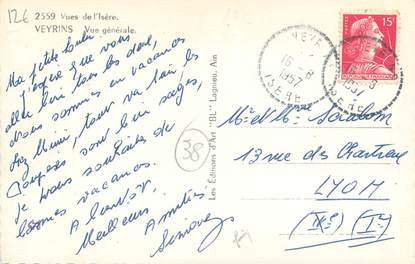 126
2559 Vues de l'Isère.
VEYRINS Vue générale.
Ma petite
J'espère que vous
allez bien tous les deux,
nous sommes en vacances
chez Mimi, tout va bien les
sont bien sages,
je vous souhaite de
bonnes vacances.
A bientôt
Meilleures Amitiés
Simone
38
Les Éditions d'Art "BL" Lagnieu, Ain
16-8
1957
ISERE
POSTES
15F
REPUBLIQUE FRANÇAISE
Mr et Mme
13 rue des Chartreux
LYON
(Ier)